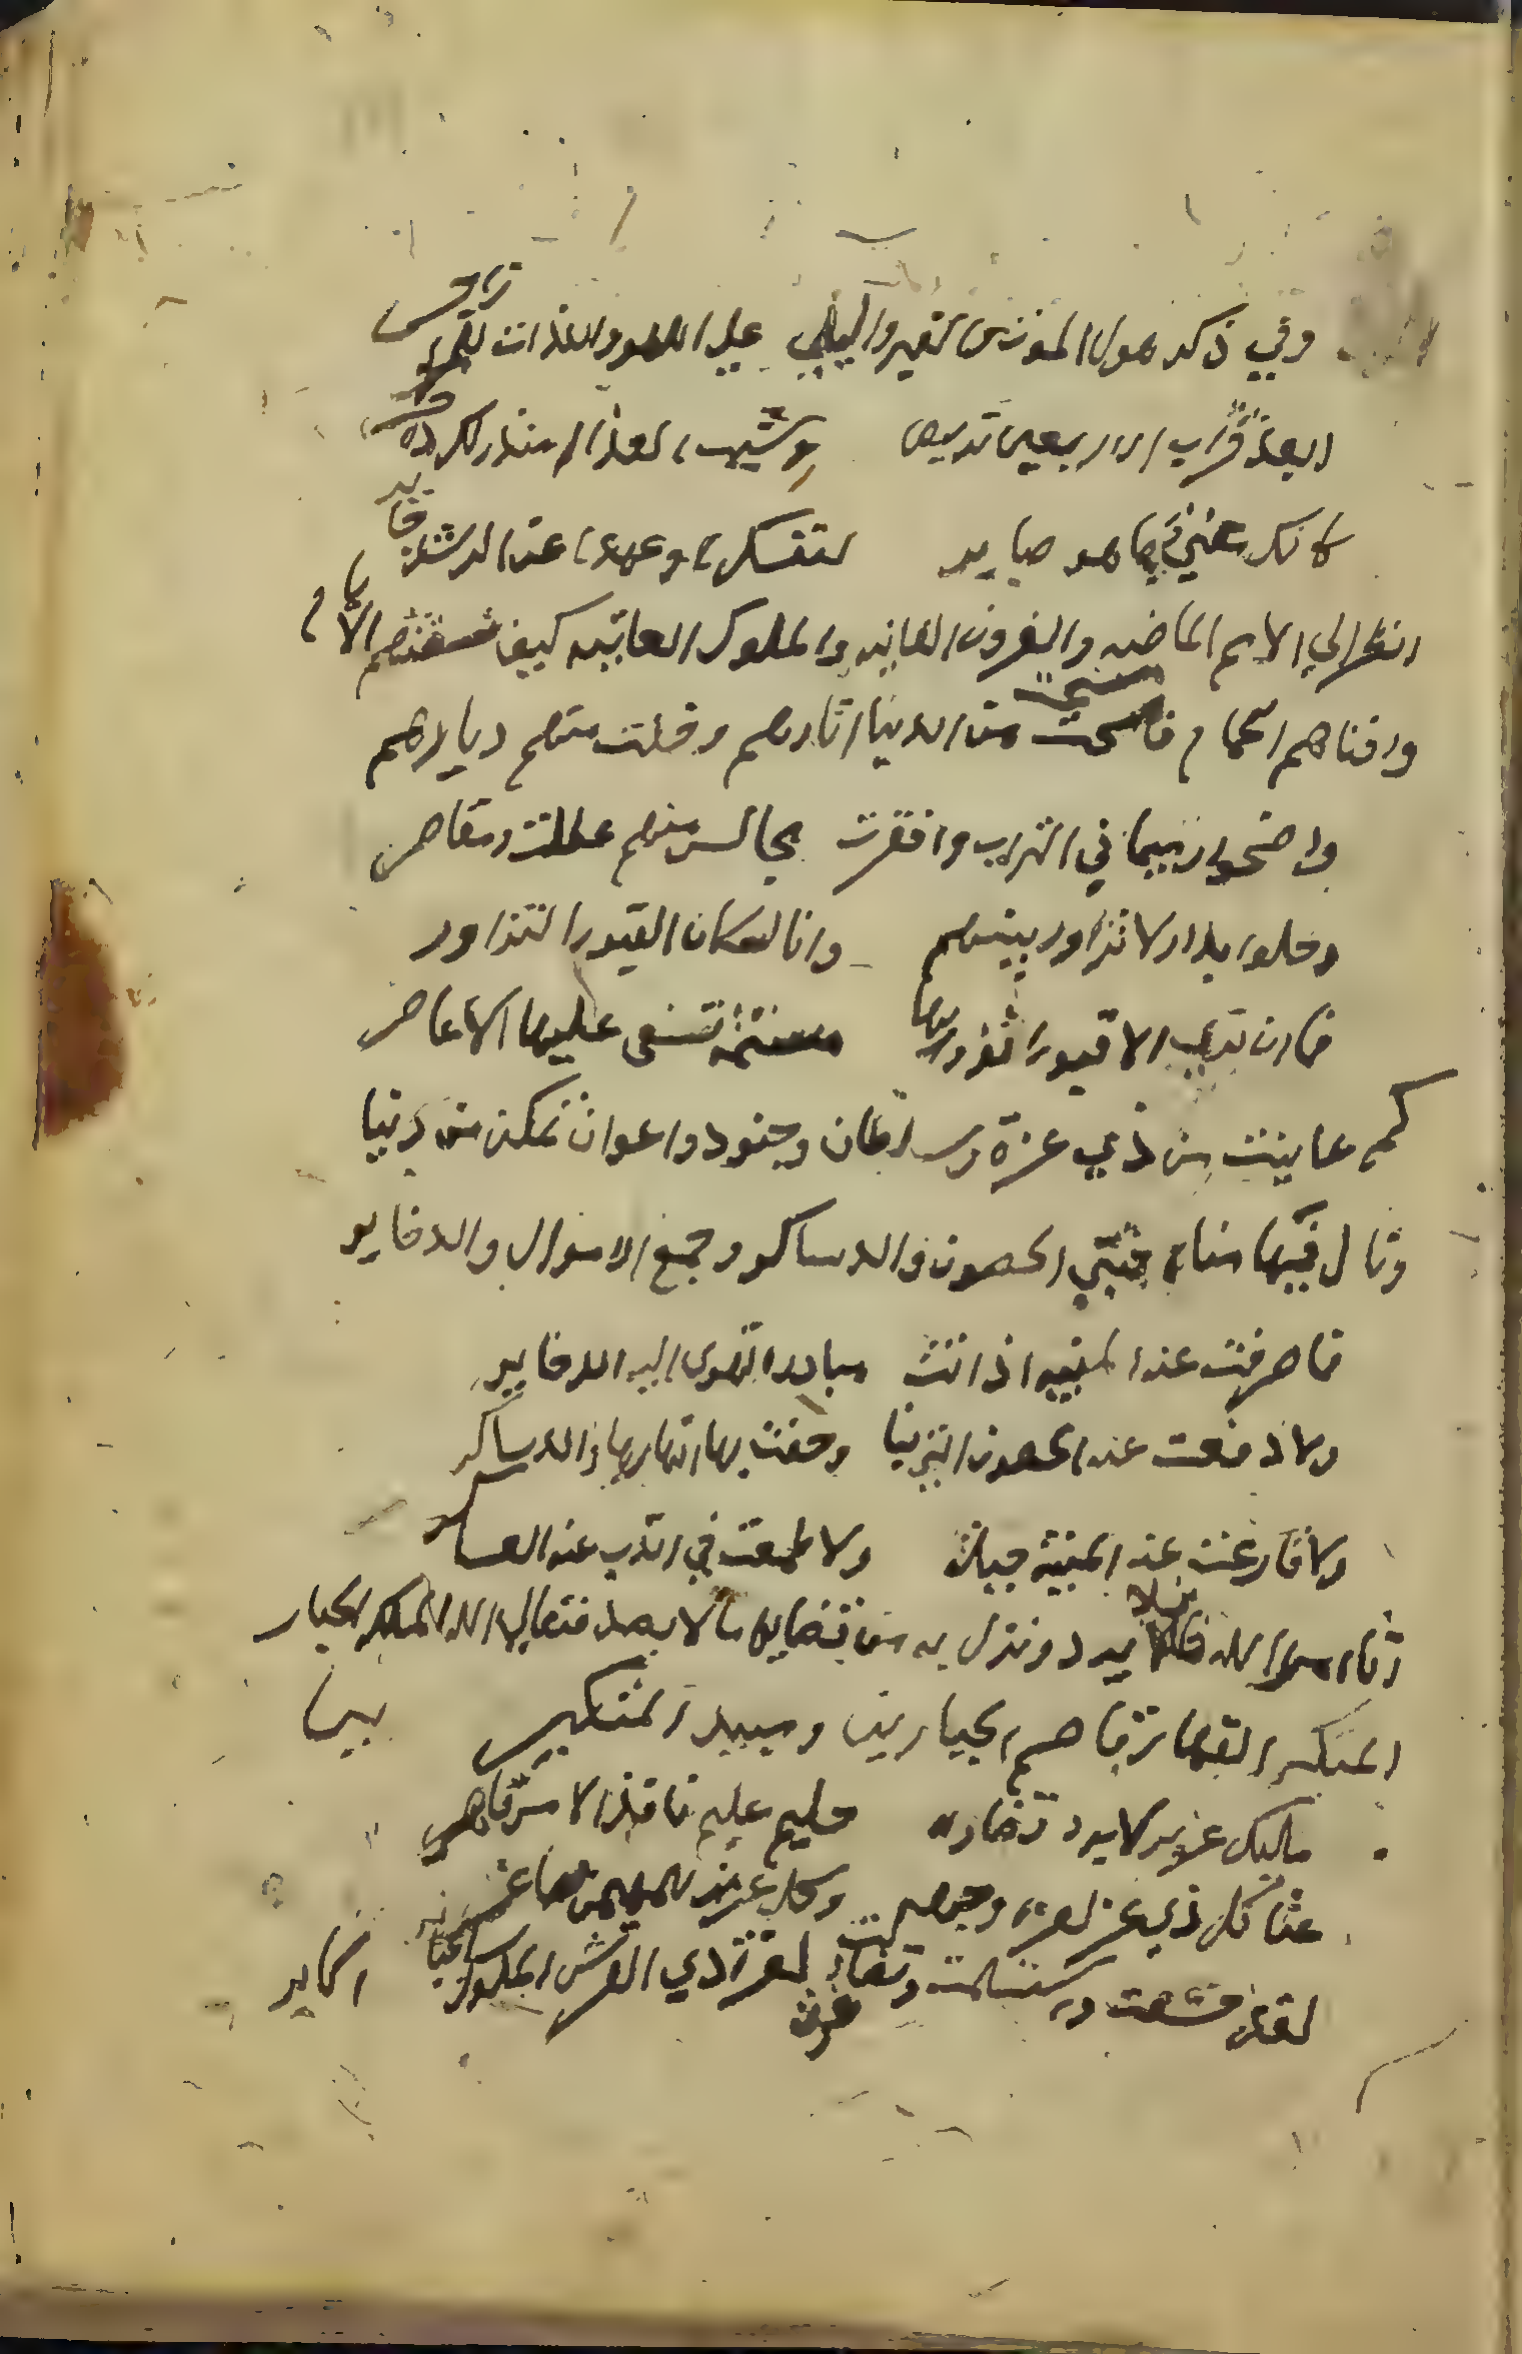 وفي ذكر هول الموت والقبر والبلى عن اللهو واللذات للمرء زاجر
ابعد قراب الاربعين تربص وشيب العذار منذر لك
كانك معني بما هو صاير لنفسك او عن الرشد
انظر الي الامم الماضيه والقرون الفانيه والملوك العاتيه كيف الايام
وافناهم الحمام فامتحت من الدنيا اثارهم وخلت منهم ديارهم
واضحوا رميما في التراب واقفرت مجالس منهم عطلت ومقاصر
وحلوا بدار لا تزاور بينهم وانا لسكان القبور التزاور
فما ان تري الا قبورا ثووا بها مسنمة تسفي عليها الاعاصر
كم عاينت من ذي عزة وسلطان وجنود واعوان تمكن من دنيا
ونال فيها مناه فبني الحصون والدساكر وجمع الاموال والدخاير
فما صرفت عنه المنيه اذ اتت مبادرة تهوي اليه الدخاير
ولا دفعت عنه الحصون التي بنا وحفت بها انهارها والدساكر
ولا قارعت عنه المنية حيلة ولا طمعت في الذب عنه العساكر
اتاه من الله مالا يرد ونزل به من قضايه مالا يصد فتعالي الله الملك الجبار
المتكبر القهار قاصم الجبارين ومبيد المتكبرين
مليك عزيز لا يرد قضاوه حليم عليم نافذ الامر قاهر
عنا كل ذي عز لعزة وجهه وكل عزيز للمهيمن صاغر
لقد خشعت واستسلمت وتضاءلت لعزة ذي العرش الملوك الجبابر